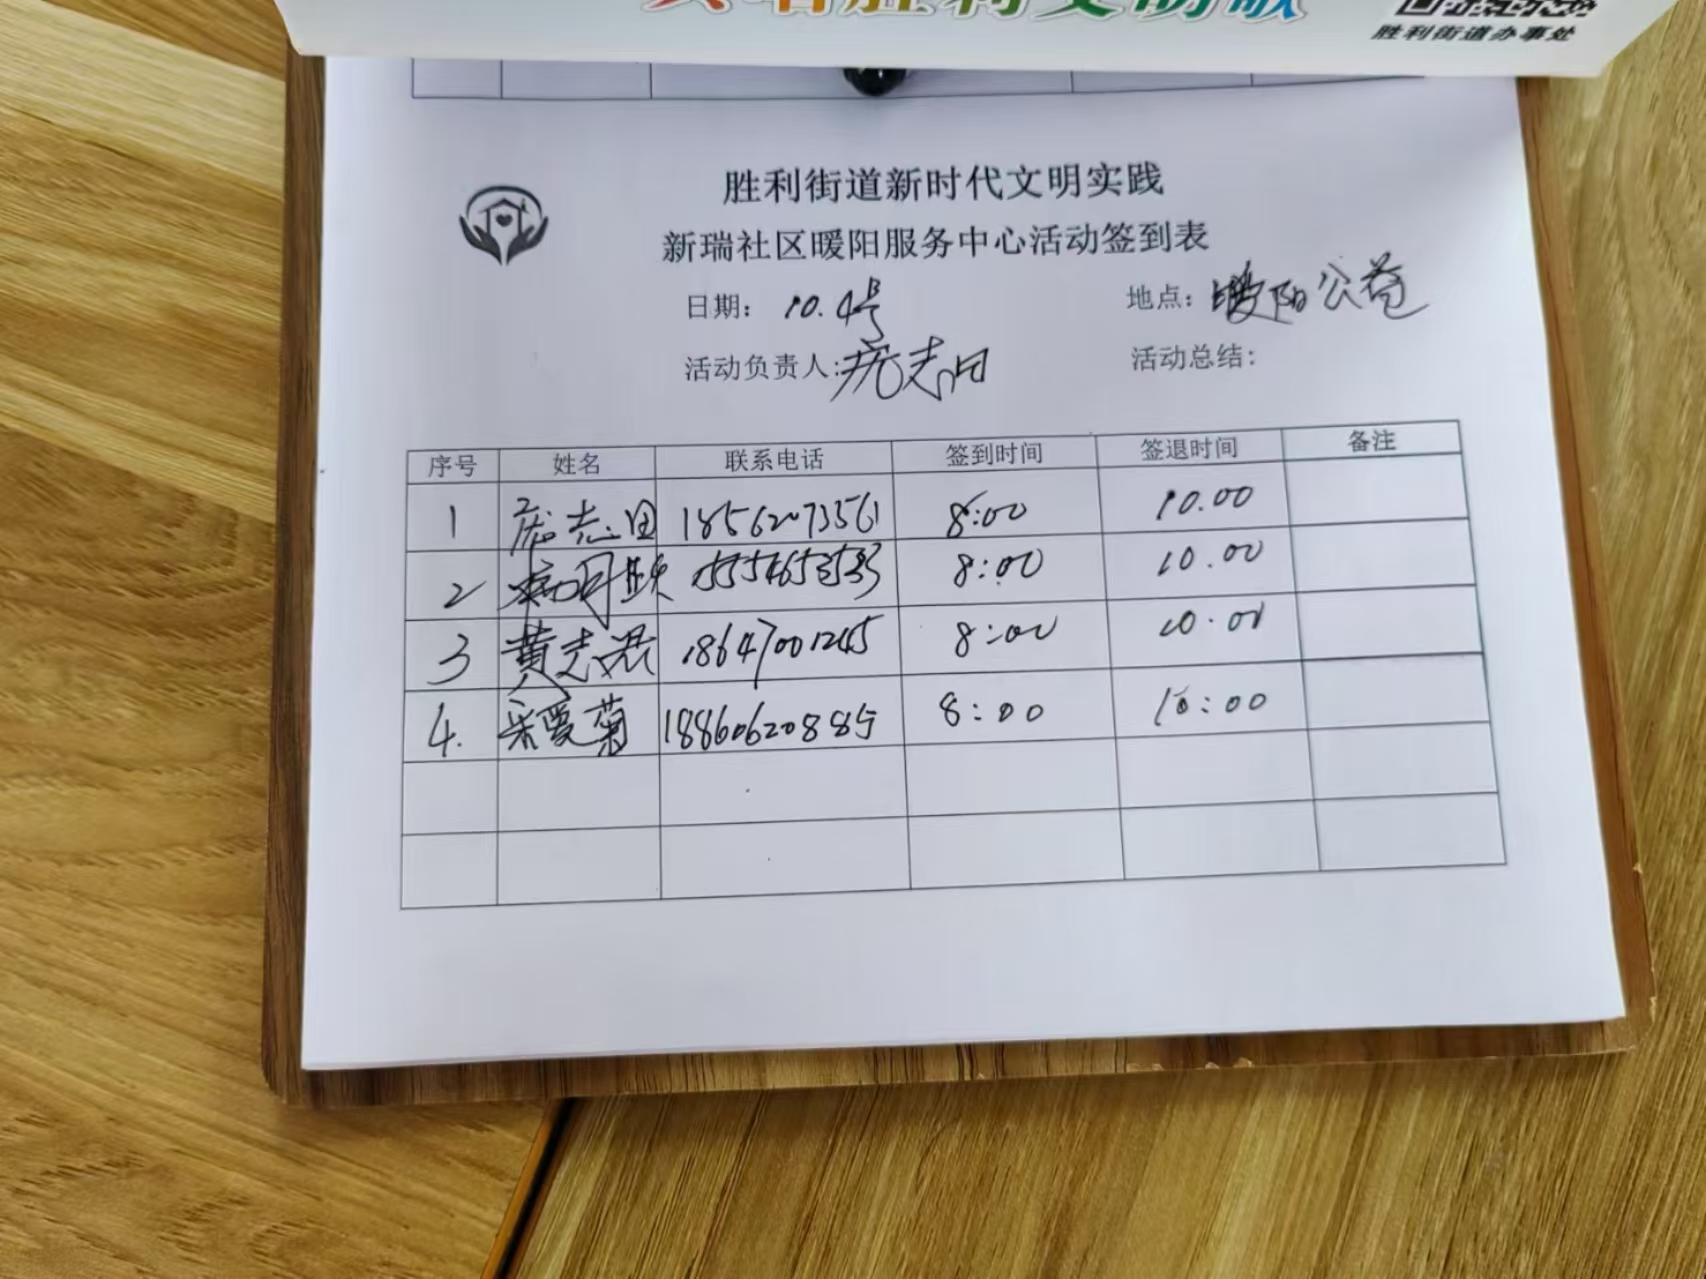 胜利文明歌
胜利街道办事处
胜利街道新时代文明实践
新瑞社区暖阳服务中心活动签到表
日期: 10.4号 地点: 暖阳公益
活动负责人: 志田 活动总结:
序号 姓名 联系电话 签到时间 签退时间 备注
1 志田 18562073561 8:00 10.00
2 8:00 10.00
3 黄志君 18647001245 8:00 10.00
4. 宋爱菊 18860620885 8:00 10:00